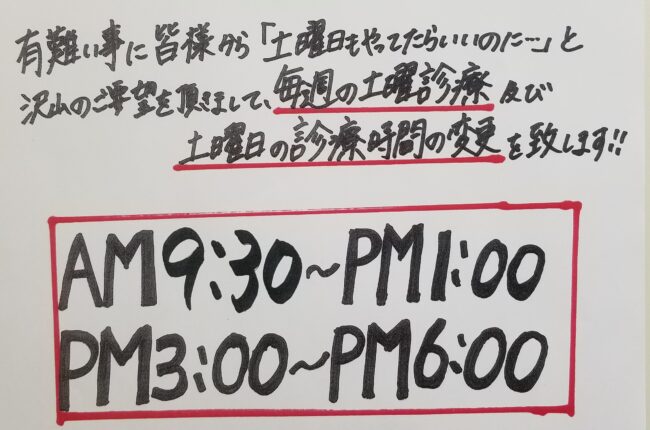 有難い事に皆様から「土曜日もやってたらいいのに…」と
沢山のご要望を頂きまして、毎週の土曜診療 及び
土曜日の診療時間の変更を致します!!
AM9:30~PM1:00
PM3:00~PM6:00